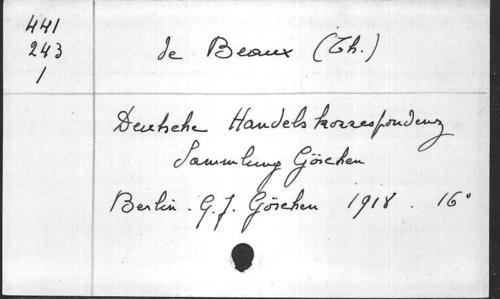 441
243
1
de Beaux (Th.)
Deutsche Handelskorrespondenz
Sammlung Göschen
Berlin. G. J. Göschen 1918. 16°